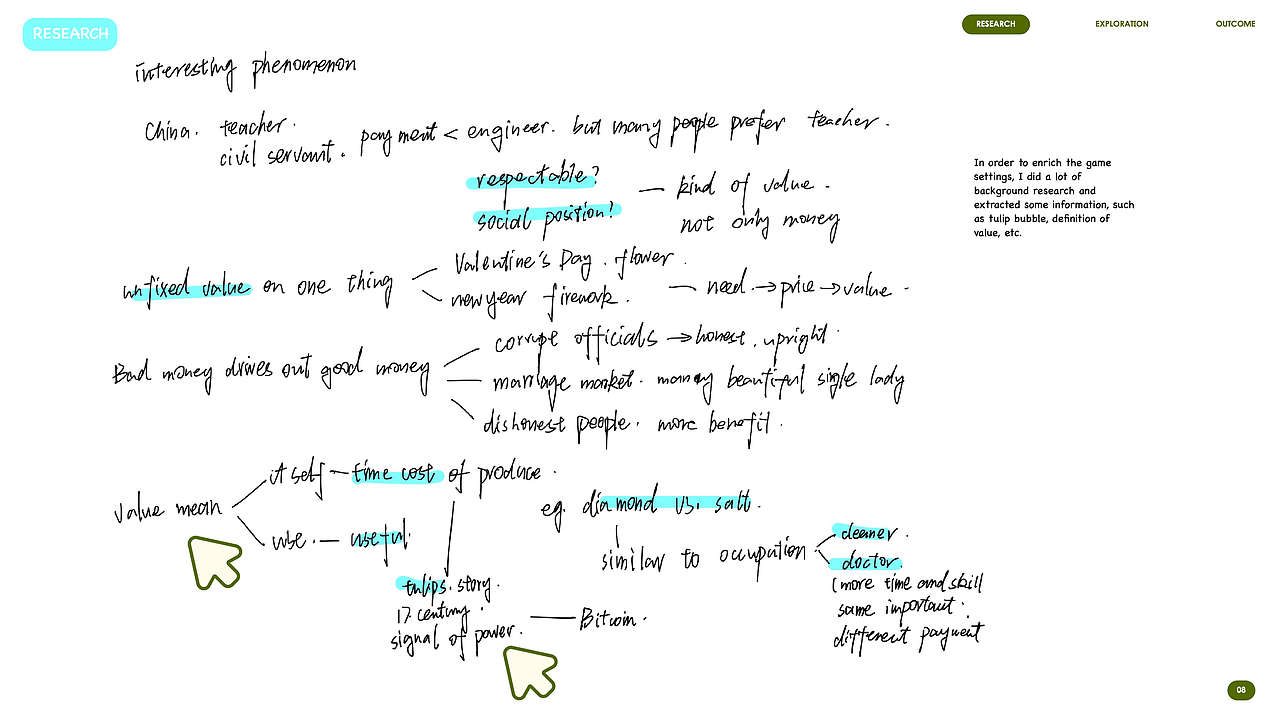 RESEARCH
RESEARCH
EXPLORATION
OUTCOME
interesting phenomenon
China. teacher.
civil servant. payment < engineer. but many people prefer teacher.
respectable?
social position?
— kind of value.
not only money
In order to enrich the game
settings, I did a lot of
background research and
extracted some information, such
as tulip bubble, definition of
value, etc.
unfixed value on one thing
Valentine's Day. flower.
new year firework.
— need → price → value.
Bad money drives out good money
corrupe officials → honest, upright.
marriage market. many beautiful single lady
dishonest people. more benefit.
value mean
itself — time cost of produce.
use. — useful.
eg. diamond vs. salt.
similar to occupation.
cleaner.
doctor.
(more time and skill
same important.
different payment
tulips. story.
17 century.
signal of power.
— Bitcoin.
08